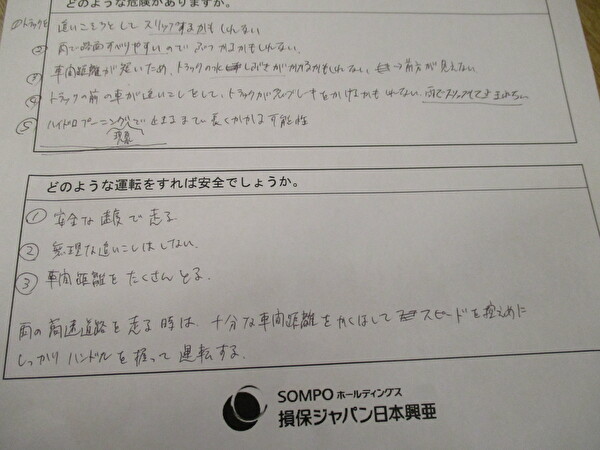 どのような危険がありますか。
①トラックを 追いこそうとして スリップするかもしれない
② 雨で路面すべりやすいので ぶつかるかもしれない。
③ 車間距離が短いため、トラックの水しぶきがかかるかもしれない、→前方が見えない
④ トラックの前の車が追いこしをして、トラックが急ブレーキをかけるかもしれない。雨でスリップして止まれない
⑤ ハイドロプレーニングで止まるまでに長くかかる可能性
現象
どのような運転をすれば安全でしょうか。
① 安全な速度で走る
② 無理な追いこしはしない。
③ 車間距離をたくさんとる。
雨の高速道路を走る時は、十分な車間距離をかくほして スピードを控えめに
しっかりハンドルを握って運転する。
SOMPO ホールディングス
損保ジャパン日本興亜